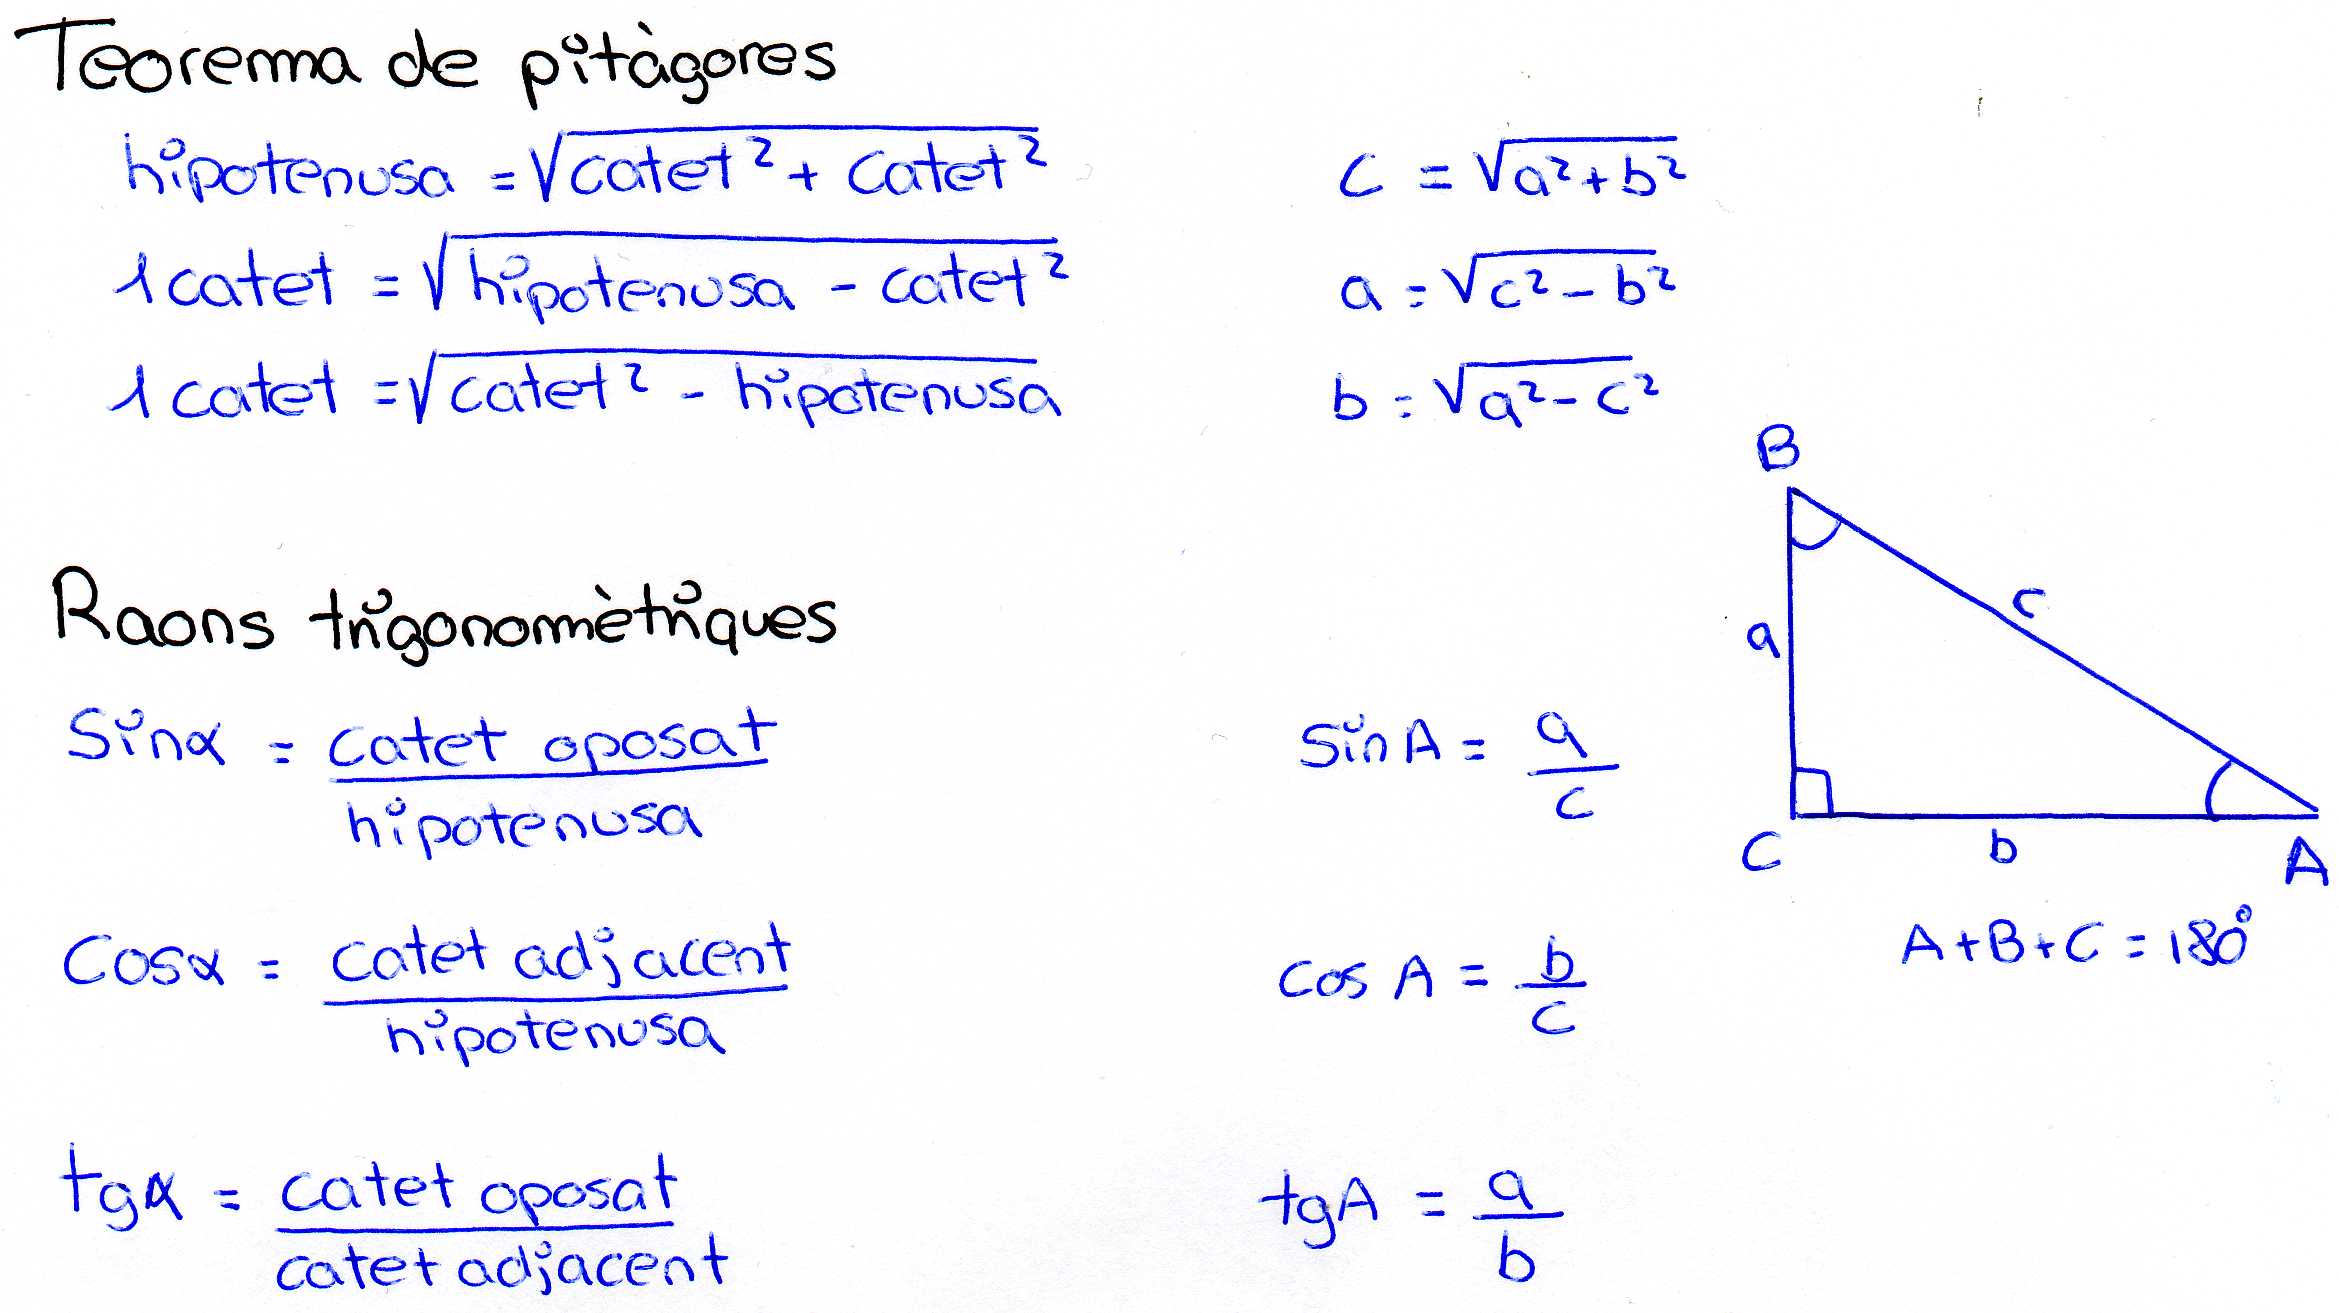 Teorema de pitàgores
hipotenusa = √catet² + catet²
c = √a²+b²
1 catet = √hipotenusa - catet²
a = √c²-b²
1 catet = √catet² - hipotenusa
b = √a²-c²
B
a
c
C
b
A
A+B+C = 180°
Raons trigonomètriques
Sinα = catet oposat
hipotenusa
sin A = a
c
Cosα = catet adjacent
hipotenusa
cos A = b
c
tgα = catet oposat
catet adjacent
tgA = a
b